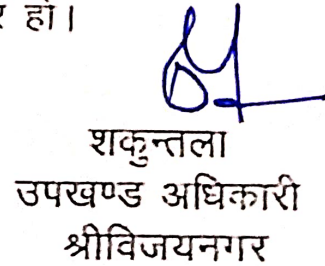 हो।
शकुन्तला
उपखण्ड अधिकारी
श्रीविजयनगर